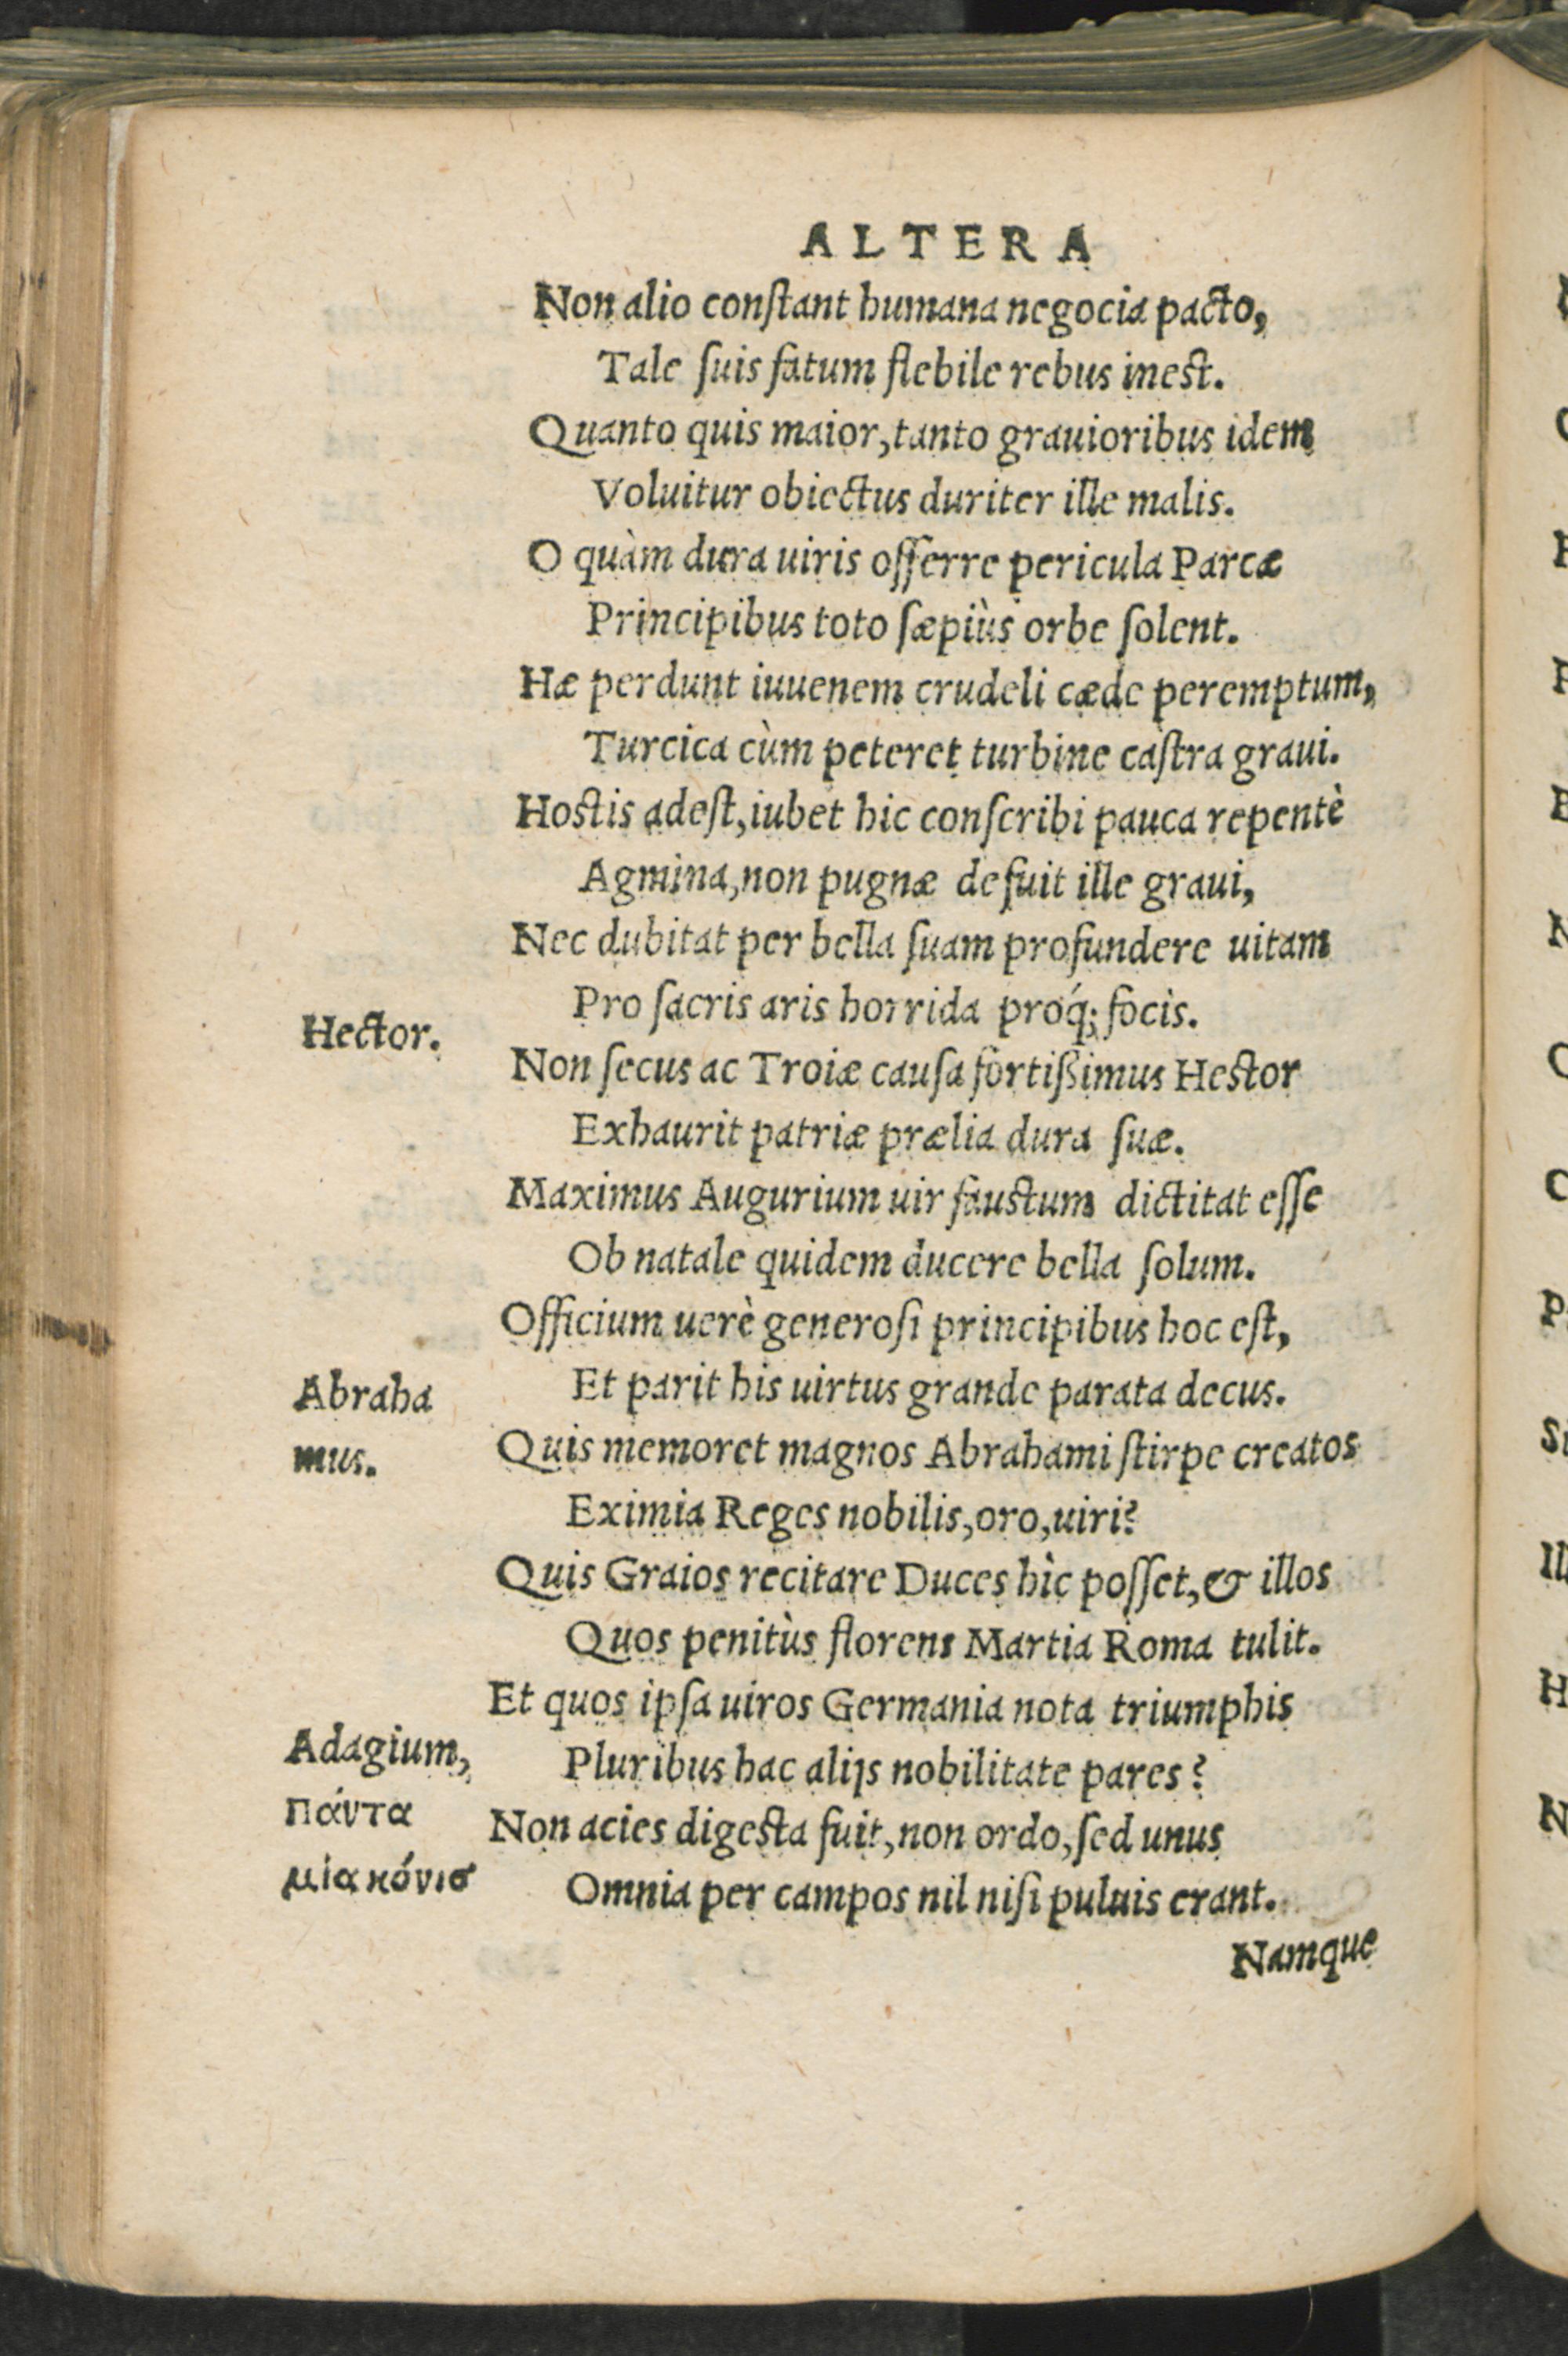 ALTERA
Non alio conſtant humana negocia pacto,
Tale ſuis fatum flebile rebus ineſt.
Quanto quis maior, tanto grauioribus idem
Voluitur obiectus duriter ille malis.
O quàm dura uiris offerre pericula Parcæ
Principibus toto ſæpiùs orbe ſolent.
Hæ perdunt iuuenem crudeli cæde peremptum,
Turcica cùm peteret turbine caſtra graui.
Hostis adeſt, iubet hic conſcribi pauca repentè
Agmina, non pugnæ defuit ille graui,
Nec dubitat per bella ſuam profundere uitam
Pro ſacris aris horrida proq́; focis.
Hector.
Non ſecus ac Troiæ cauſa fortißimus Hector
Exhaurit patriæ prælia dura ſuæ.
Maximus Augurium uir faustum dictitat eſſe
Ob natale quidem ducere bella ſolum.
Officium uerè generoſi principibus hoc eſt,
Et parit his uirtus grande parata decus.
Abraha
mus.
Quis memoret magnos Abrahami ſtirpe creatos
Eximia Reges nobilis, oro, uiri?
Quis Graios recitare Duces hìc poſſet, & illos
Quos penitùs florens Martia Roma tulit.
Et quos ipſa uiros Germania nota triumphis
Pluribus hac alijs nobilitate pares?
Adagium,
πάντα
μία κόνισ
Non acies digesta fuit, non ordo, ſed unus
Omnia per campos nil niſi puluis erant.
Namque